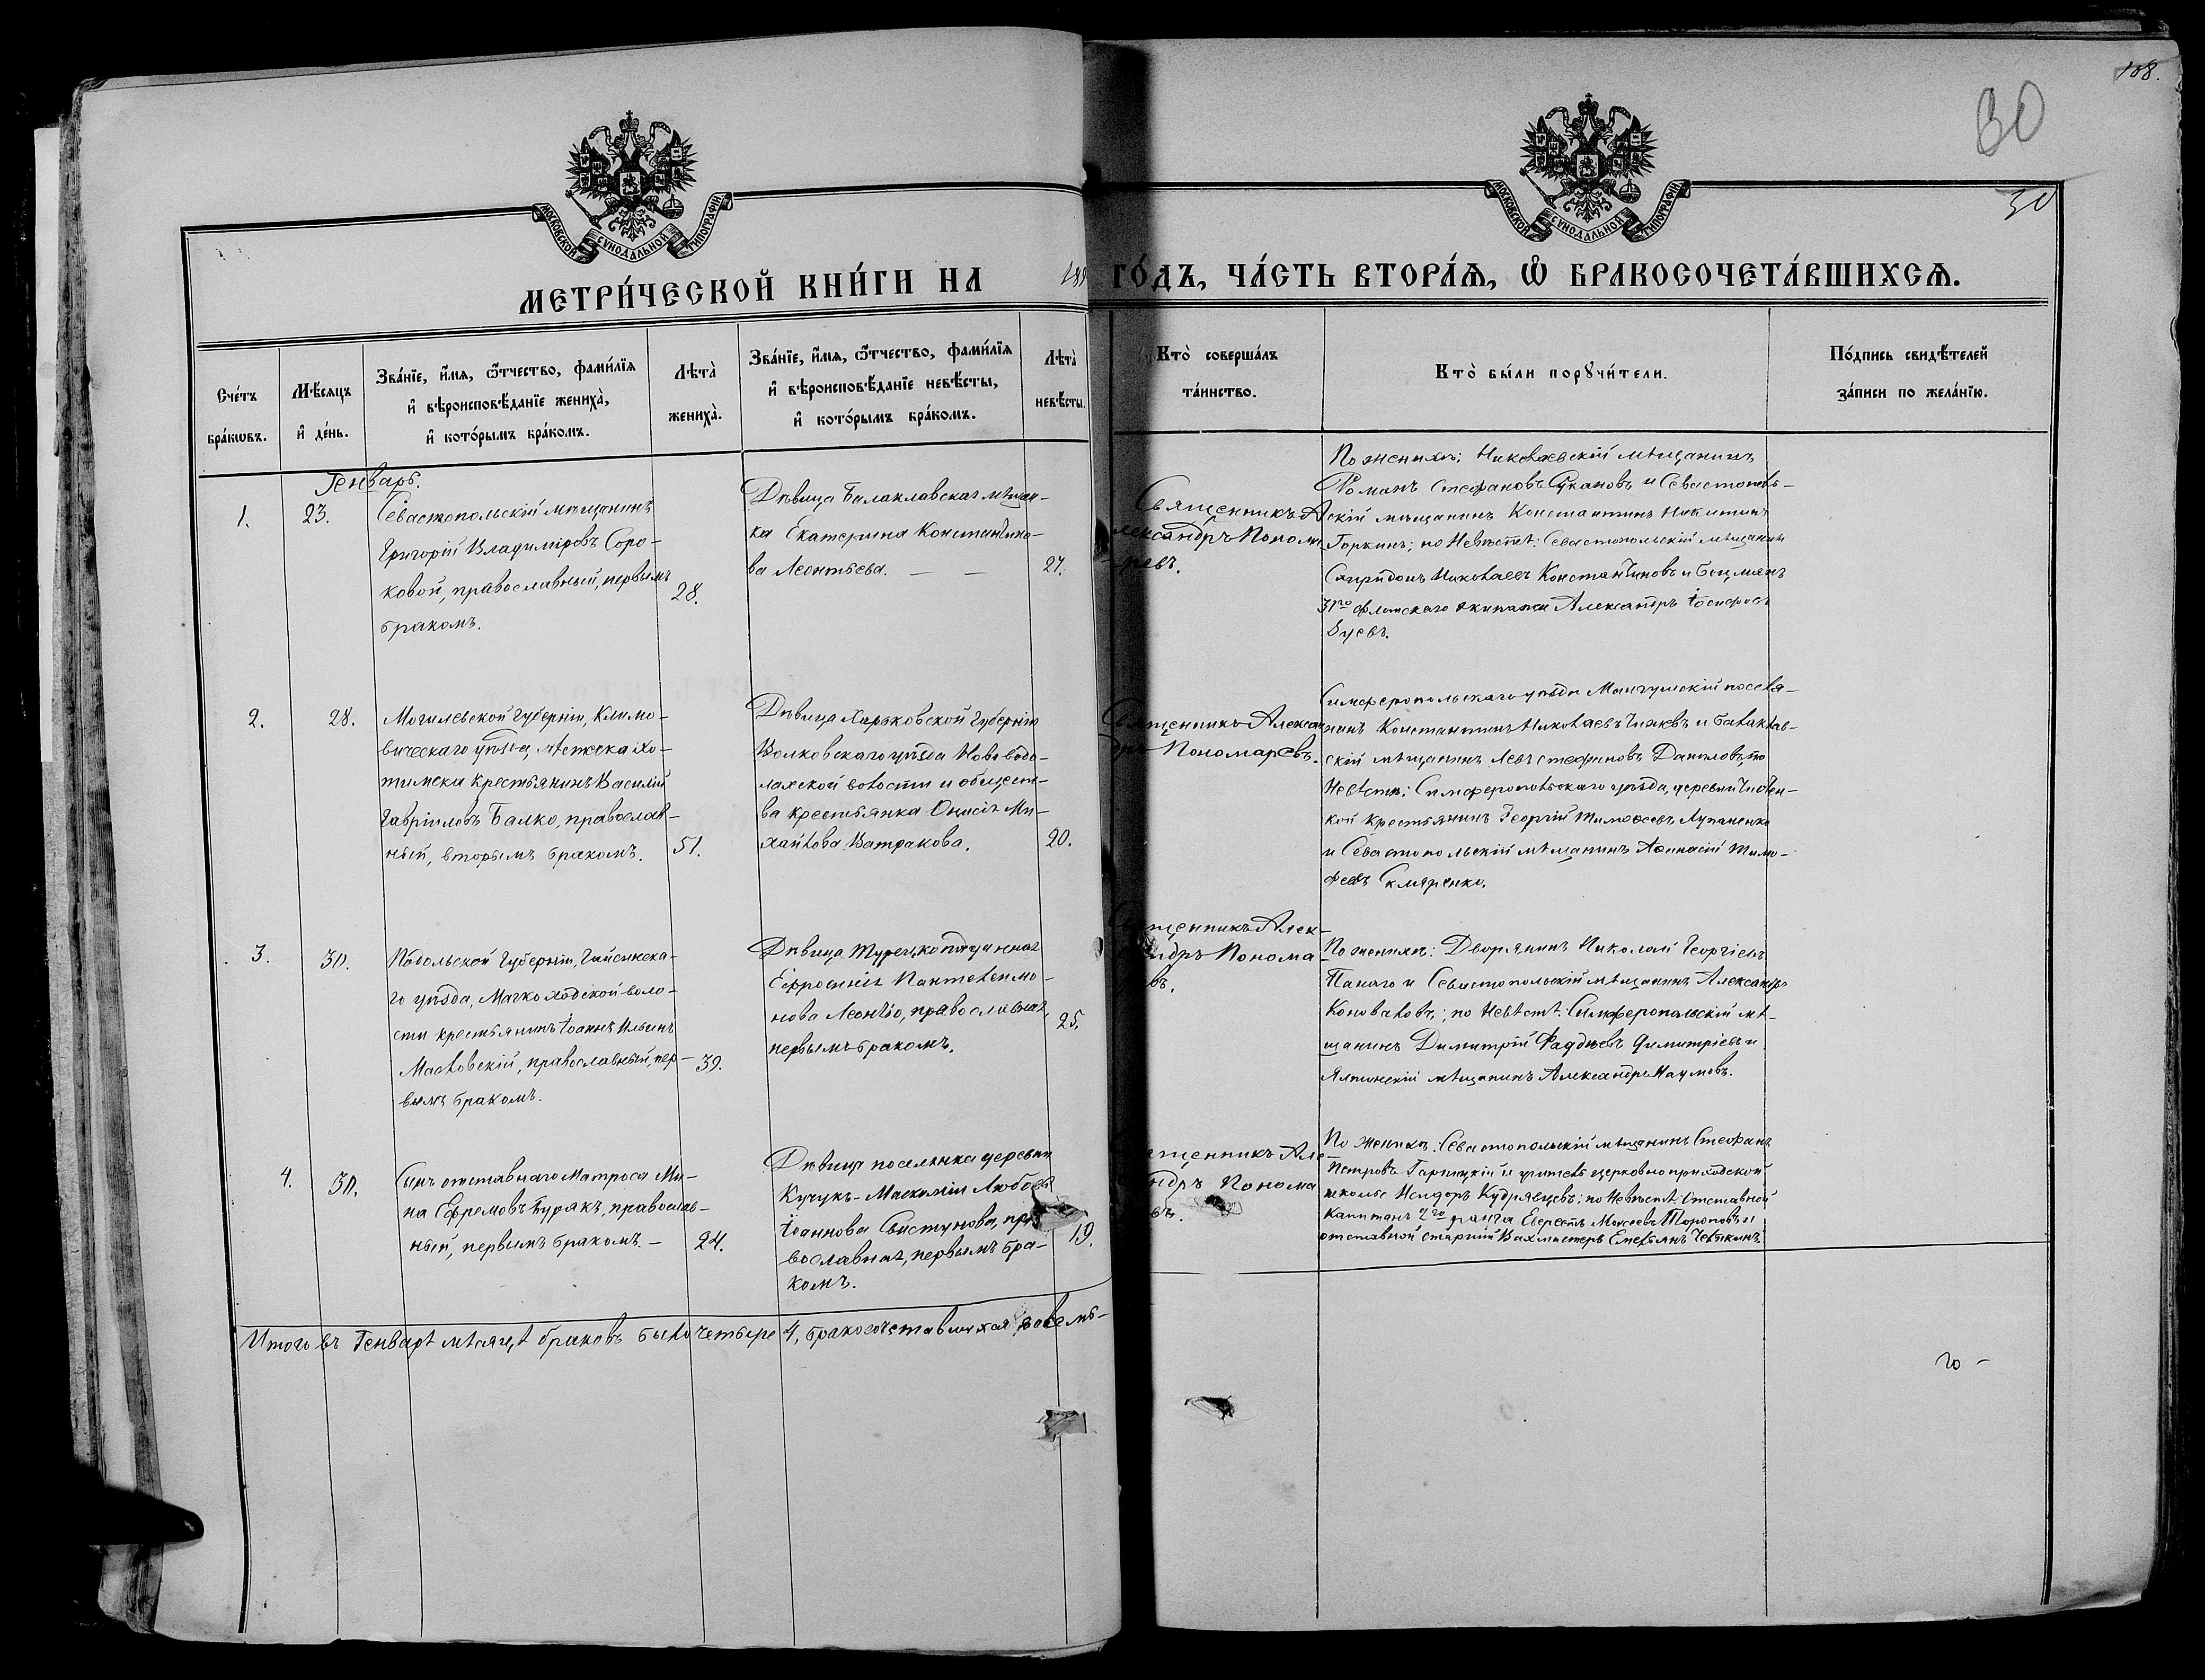 108.
30
30
МОСКОВСКОЙ СѴНОДАЛЬНОЙ ТИПОГРАФІИ
МОСКОВСКОЙ СѴНОДАЛЬНОЙ ТИПОГРАФІИ
МЕТРИ́ЧЕСКОЙ КНИ́ГИ НА
ГО́ДЪ, ЧА́СТЬ ВТОРА́Ѧ, Ѽ БРАКОСОЧЕТА́ВШИХСѦ.
Сче́тъ
бра́кѡвъ.
Мѣ́сяцъ
и҆ де́нь.
Зва́нїе, и҆́мя, ѻ҆́тчество, фами́лїя
и҆ вѣроисповѣ́данїе жениха̀,
и҆ кото́рымъ бра́комъ.
Лѣта̀
жениха̀.
Зва́нїе, и҆́мя, ѻ҆́тчество, фами́лїя
и҆ вѣроисповѣ́данїе невѣ́сты,
и҆ кото́рымъ бра́комъ.
Лѣта̀
невѣ́сты.
Кто̀ соверша́лъ
та́инство.
Кто̀ бы́ли порꙋчи́тели.
По́дпись свидѣ́телей
за́писи по жела́нїю.
Генварь.
1.
23.
Севастопольскій мѣщанинъ
Григорій Владиміровъ Соро-
ковой, православный, первымъ
бракомъ.
28.
Дѣвица Балаклавская мѣщан-
ка Екатерина Константино-
ва Леонтьева. — —
27.
Священникъ А
лександръ Понома
ревъ.
По женихѣ: Николаевскій мѣщанинъ
Романъ Стефановъ и Севастополь-
скій мѣщанинъ Константинъ Никитинъ
Горкинъ; по Невѣстѣ: Севастопольскій мѣщанинъ
Спиридонъ Николаевъ Константиновъ и Боцманъ
31го флотскаго экипажа Александръ Іосифовъ
2.
28.
Могилевской Губерніи, Климо-
вическаго уѣзда, мѣстечка Хо-
тимска крестьянинъ Василій
Гавріиловъ Балко, православ-
ный, вторымъ бракомъ.
51.
Дѣвица Харьковской Губерніи
Волковскаго уѣзда Нововодо-
лажской волости и общест-
ва крестьянка Онисія Ми-
хайлова Ватракова.
20.
Священникъ Алексан
дръ Пономаревъ.
Симферопольскаго уѣзда Мангушскій поселя-
нинъ Константинъ Николаевъ и Балаклав-
скій мѣщанинъ Левъ Стефановъ Даниловъ, по
Невѣстѣ: Симферопольскаго уѣзда, деревни
кой крестьянинъ Георгій Тимоѳеевъ Лупаненко
и Севастопольскій мѣщанинъ Аѳанасій Тимо-
феевъ Скляренко.
3.
30.
Подольской Губерніи, Гайсинска-
го уѣзда, Мачкоходской воло-
сти крестьянинъ Іоаннъ Ильинъ
Масловскій, православный, пер-
вымъ бракомъ.
39.
Дѣвица Турецкоподданная
Ефросинія Пантелеимо-
нова Леонтіо, православная,
первымъ бракомъ.
25.
щенникъ Алек-
ндръ Понома
въ.
По женихѣ: Дворянинъ Николай Георгіевъ
Папаго и Севастопольскій мѣщанинъ Александръ
Коноваловъ; по Невѣстѣ: Симферопольскій мѣ-
щанинъ Димитрій Фаддѣевъ Димитріевъ и
Ялтинскій мѣщанинъ Александръ Наумовъ.
4.
30.
Сынъ отставнаго Матроса Ми-
на Ефремовъ Бурякъ, православ-
ный, первымъ бракомъ. —
24.
Дѣвица поселянка деревни
Кучукъ-Маскоміи Любовь
Іоаннова Свистунова, пра
вославная, первымъ бра-
комъ.
19.
ященникъ Але-
ндръ Понома
въ.
По женихѣ: Севастопольскій мѣщанинъ Стефанъ
Петровъ Гарницкій и учитель церковно приходской
школы Исидоръ Кудрявцевъ; по Невѣстѣ: Отставной
Капитанъ 2го ранга Моисеевъ Тороповъ и
отставной старшій Вахмистеръ Емельянъ
Итого въ Генварѣ мѣсяцѣ браковъ было четыре 4, бракосочетавшихся восемь-